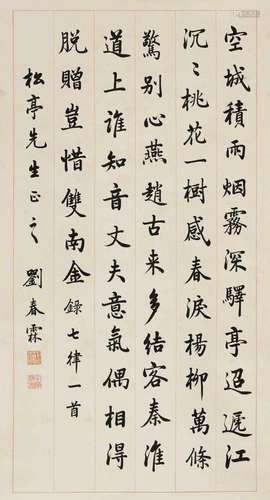 空城積雨烟霧深驛亭迢遞江
沉〻桃花一樹感春淚楊柳萬條
驚别心燕趙古来多結客秦淮
道上誰知音丈夫意氣偶相得
脱贈豈惜雙南金錄七律一首
松亭先生正之
劉春霖